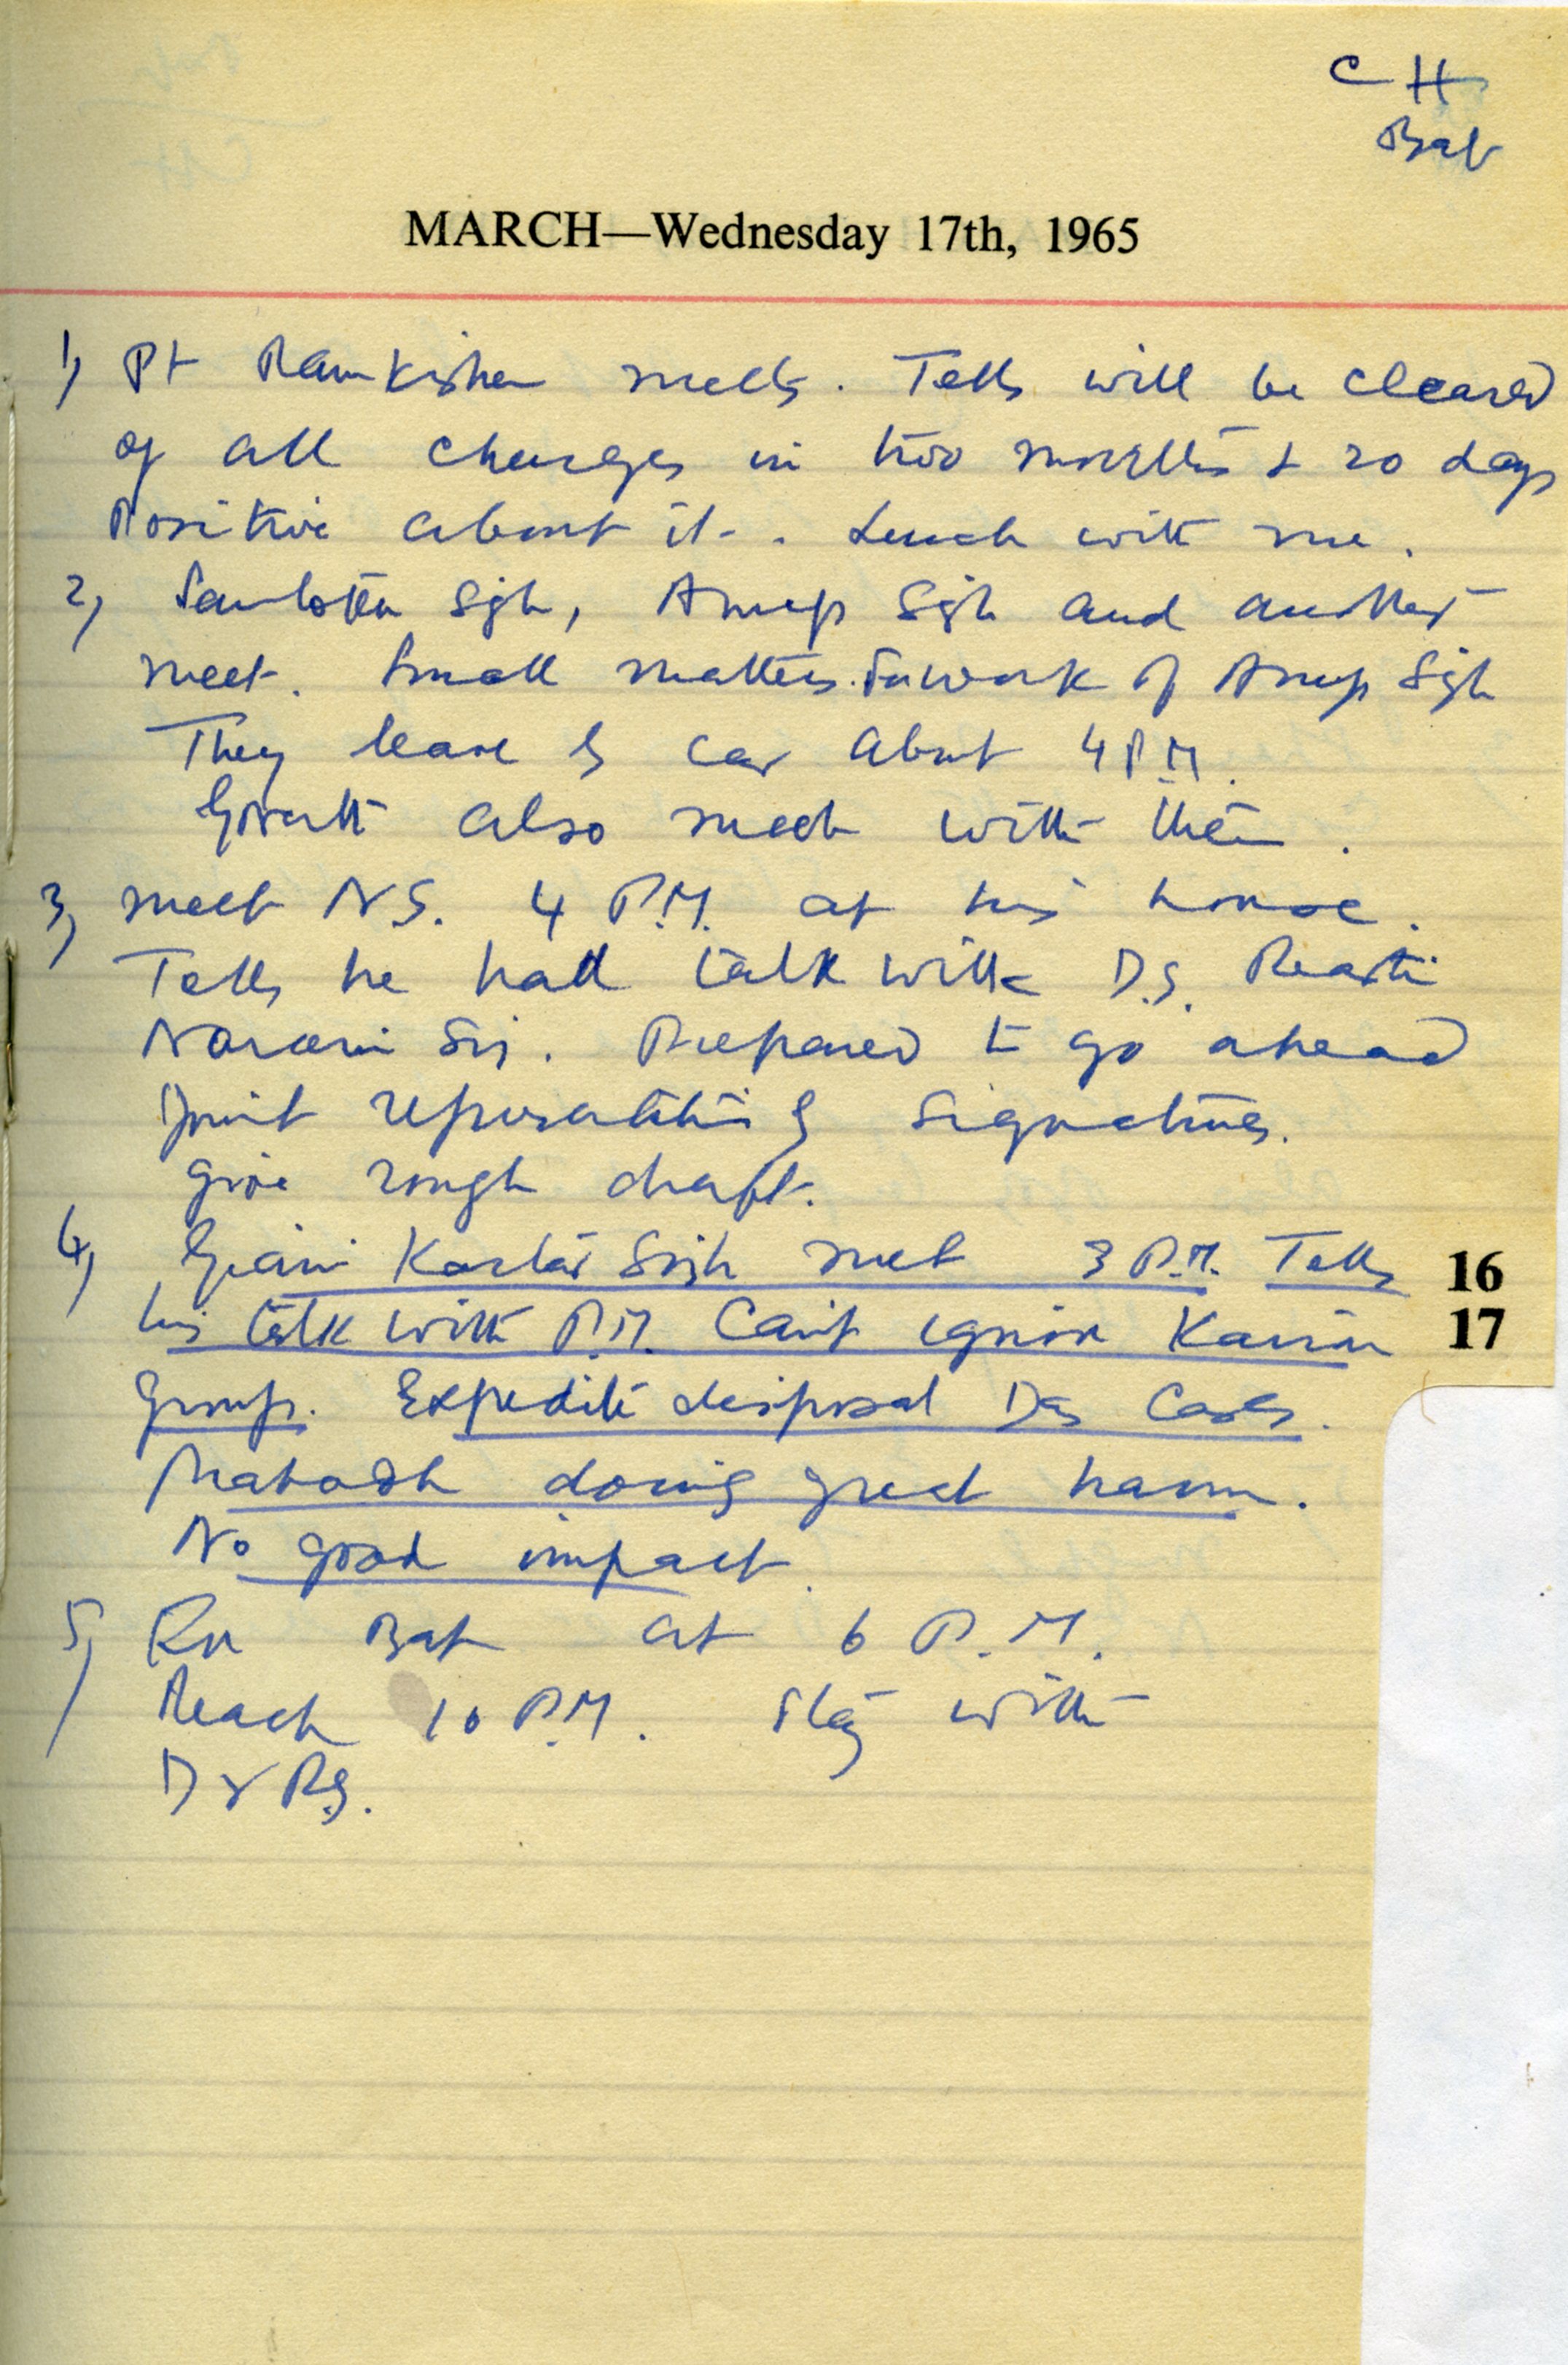 CH
Bat
MARCH—Wednesday 17th, 1965
1) Pt Ram Kishen meets. Tells will be cleared
of all charges in two months & 20 days
Positive about it. Lunch with me.
2) Sgh, Anup Sgh and another
meet. Small matters. work of Anup Sgh
They leave by car about 4 P.M.
also meet with them.
3) meet N.S. 4 P.M. at his house.
Tells he had talk with D.S.
Narain Sig. Prepared to go ahead
Joint by signatures.
Give rough draft.
4) Giani Kartar Sigh met 3 P.M. Tells 16
his talk with P.M. Can't ignore Kairon 17
Group. Expedite disposal Das Cases.
Prabodh doing great harm.
No good impact.
5) For Bat at 6 P.M.
Reach 10 P.M. Stay with
Dr P.S.